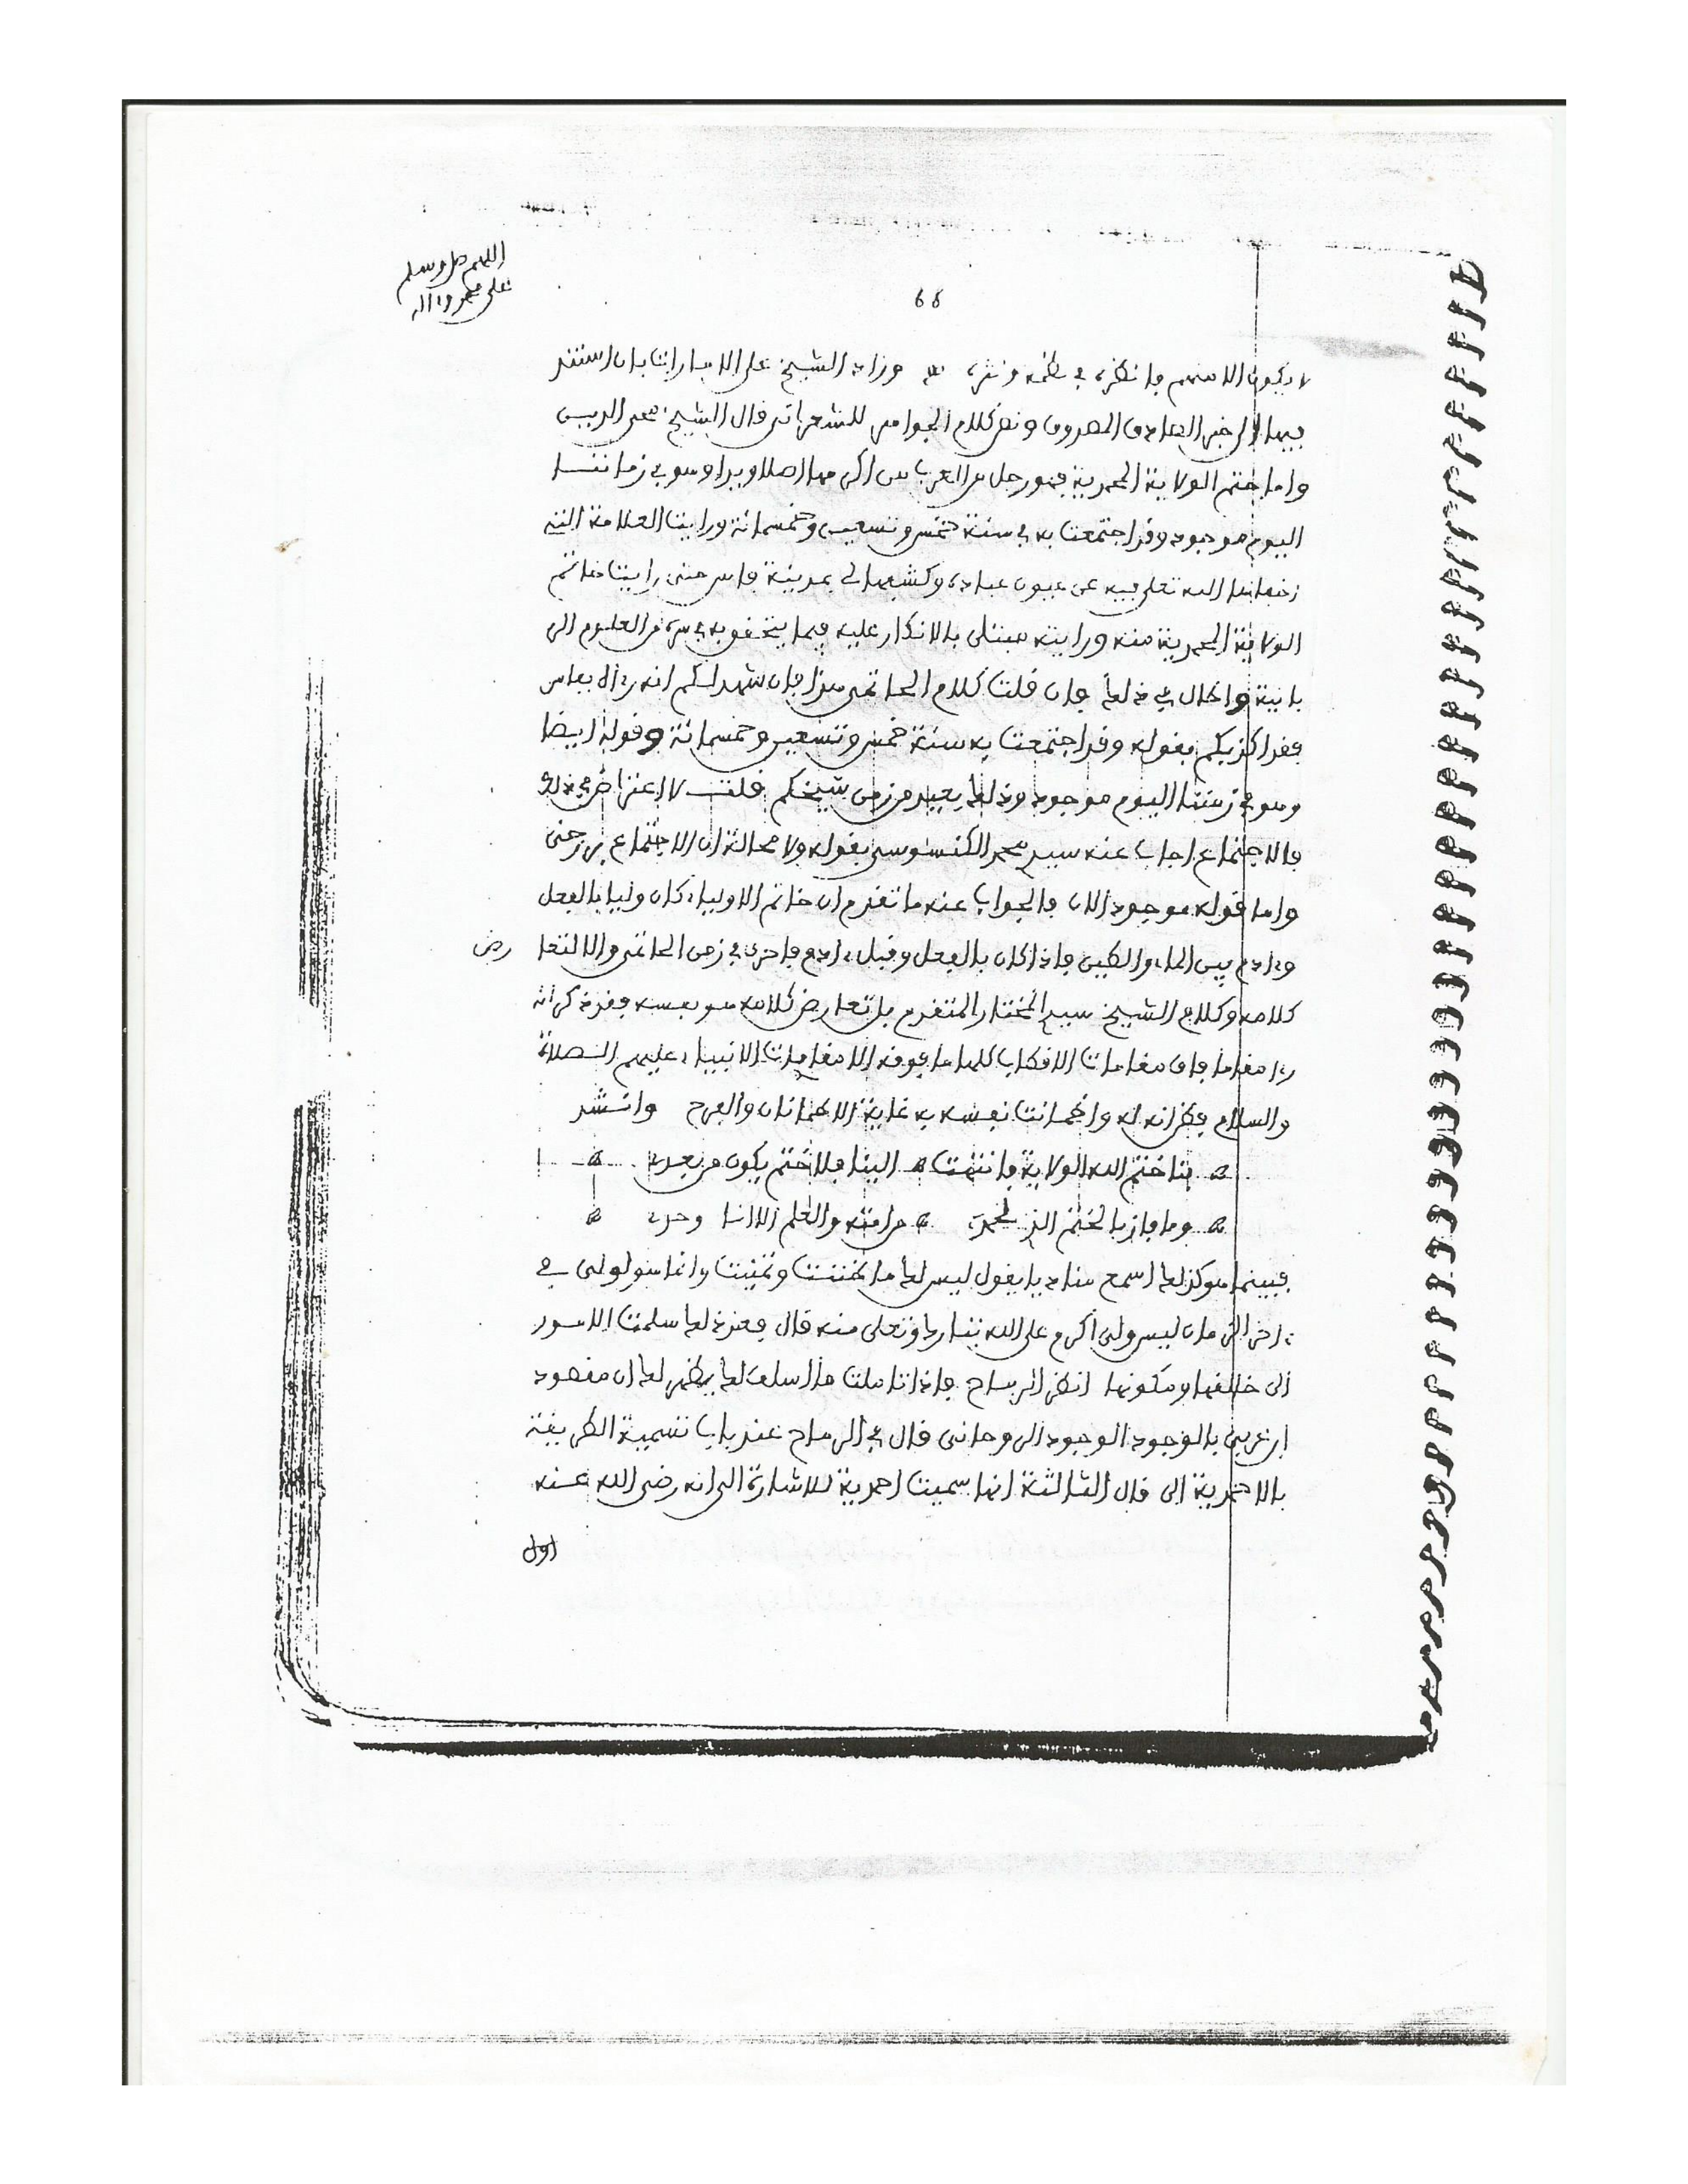 اللهم صل وسلم
على محمد وآله
66
لا يكون الا منهم فانظره في نظمه ونثره وزاد الشيخ على الا بان استند
فيها الى خبر الصادق المصدوق ونص كلام الجواهر للشعراني قال الشيخ محي الدين
واما ختم الولاية المحمدية فهو رجل من العرب من اكرمها اصلا ويدا وهو في زماننا
اليوم موجود وقد اجتمعت به في سنة خمس وتسعين وخمسمائة ورايت العلامة التي
اخفاها الله تعلى فيه عن عيون عباده وكشفها لي بمدينة فاس حتى رايت خاتم
الولاية المحمدية منه ورايته مبتلى بالانكار عليه فيما يتحقق به في سره من العلوم الى
فان قلت كلام الحاتمي هذا فان شهد لكم انه بفاس
فقد اكذبكم بقوله وقد اجتمعت به سنة خمس وتسعين وخمسمائة وقوله ايضا
وهو في زمننا اليوم موجود وذلك بعيد من زمن شيخكم قلت لا اعتراض في ذلك
فالاجتماع اجاب عنه سيد محمد الكنسوسي بقوله ولا محالة ان الاجتماع برزخي
واما قوله موجود الان فالجواب عنه ما تقدم ان خاتم الاولياء كان وليا بالفعل
وءادم بين الماء والطين فاذا كان بالفعل وقبل ءادم فاحرى في زمن الحاتمي والا لتعا
رض
كلامه وكلام الشيخ سيد المختار المتقدم بل تعارض كلامه هو بنفسه فقد ذكر انه
راى مقاما فاق مقامات الاقطاب كلها ما فوقه الا مقامات الانبياء عليهم الصلاة
والسلام فظن انه له واطمانت نفسه به غاية الاطمئنان والفرح وانشد
بنا ختم الله الولاية فانتهت الينا فلا ختم يكون من بعدي
وما فاز بالختم الذي لمحمد من امته والعلم الا انا وحدي
فبينما هو كذلك اسمع مناديا يقول ليس لك ما ظننت وتمنيت وانما هو لولي في
ءاخر الزمان ليس ولي اكرم على الله تبارك وتعلى منه قال فعند ذلك سلمت الامور
الى خالقها ومكونها انظر الرماح فاذا تاملت ما اسلفت لك يظهر لك ان مقصود
ابن عربي بالوجود الوجود الروحاني قال في الرماح عند باب تسمية الطريقة
بالاحمدية الى قال الثالثة انها سميت احمدية للاشارة الى انه رضي الله عنه
اول